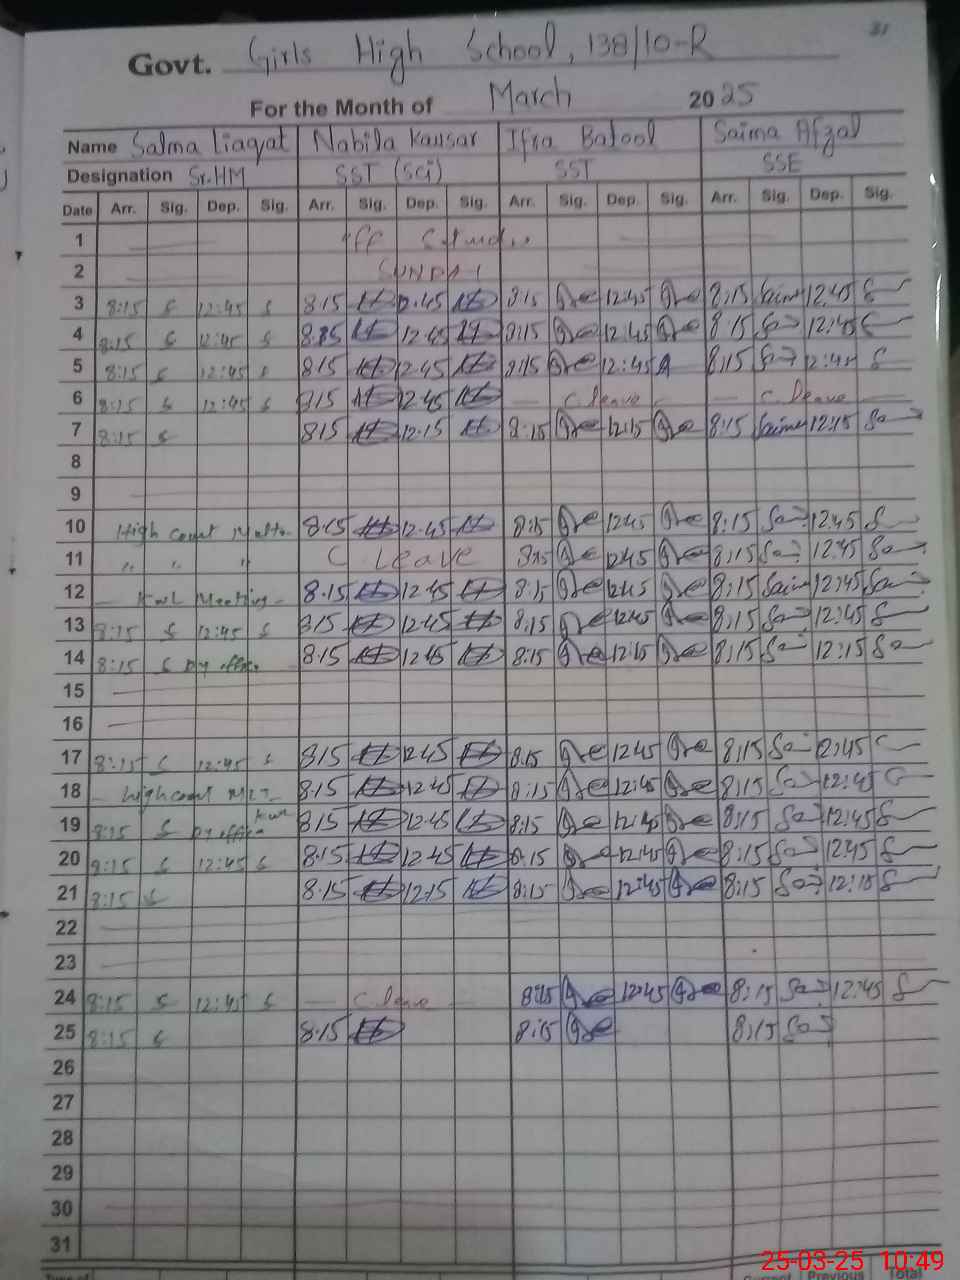 31
Govt. Girls High School, 138/10-R
For the Month of March 2025
Name Salma Liaqat Nabila Kausar Ifra Batool Saima Afzal
Designation Sr.HM SST (Sci) SST SSE
Date Arr. Sig. Dep. Sig. Arr. Sig. Dep. Sig. Arr. Sig. Dep. Sig. Arr. Sig. Dep. Sig.
1
2 SUNDAY
3 8:15 S 12:45 S 8.15 12.45 8:15 12:45 8:15 Saima 12:45 S
4 8:15 S 12:45 S 12.45 8:15 12:45 8:15 Sa 12:45 S
5 8:15 S 12:45 S 8.15 12.45 8:15 12:45 8:15 Sa 12:45 S
6 8:15 S 12:45 S 8.15 12.45 C leave C leave
7 8:15 S 8.15 12.15 8:15 12:15 8:15 Saima 12:15 Sa
8
9
10 High Court 8.15 12.45 8:15 12:45 8:15 Sa 12:45 S
11 " " " C Leave 8:15 12:45 8:15 Sa 12:45 Sa
12 Kwl Meeting 8.15 12.45 8:15 12:45 8:15 Saim 12:45 Sai
13 8:15 S 12:45 S 8.15 12.45 8:15 12:45 8:15 Sa 12:45 S
14 8:15 S 8.15 12.45 8:15 12:15 8:15 Sa 12:15 Sa
15
16
17 8:15 S 12:45 S 8.15 12.45 8.15 12:45 8:15 Sa 12:45
18 High court 8.15 12.45 8:15 12:45 8:15 Sa 12:45
19 8:15 S Kwl 8.15 12.45 8:15 12:45 8:15 Sa 12:45 S
20 8:15 S 12:45 S 8.15 12.45 8.15 12:45 8:15 Sa 12:45 S
21 8:15 S 8.15 12.15 8:15 12:45 8:15 Sa 12:15 S
22
23
24 8:15 S 12:45 S C leave 8:15 12:45 8:15 Sa 12:45 S
25 8:15 S 8.15 8:15 8:15 Sa
26
27
28
29
30
31
25-03-25 10:49
Previous Total